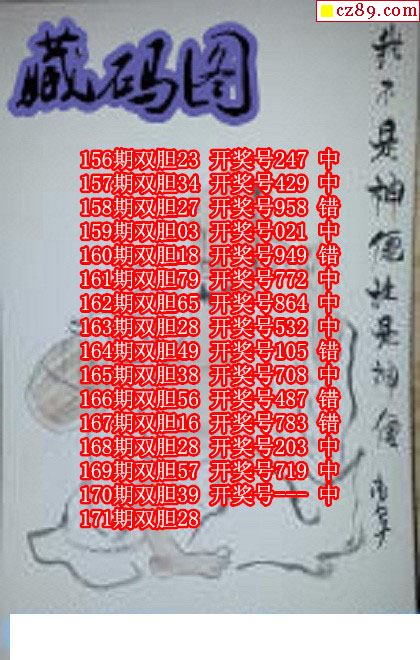 cz89.com
藏码图
我不是神仙谁是神仙
156期双胆23 开奖号247 中
157期双胆34 开奖号429 中
158期双胆27 开奖号958 错
159期双胆03 开奖号021 中
160期双胆18 开奖号949 错
161期双胆79 开奖号772 中
162期双胆65 开奖号864 中
163期双胆28 开奖号532 中
164期双胆49 开奖号105 错
165期双胆38 开奖号708 中
166期双胆56 开奖号487 错
167期双胆16 开奖号783 错
168期双胆28 开奖号203 中
169期双胆57 开奖号719 中
170期双胆39 开奖号--- 中
171期双胆28